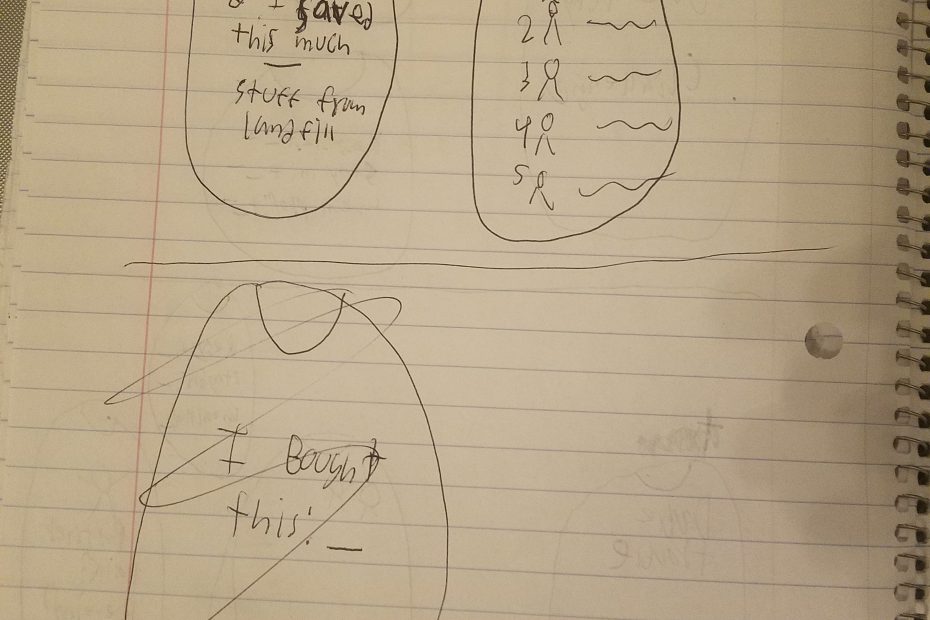 I saved
this much
stuff from
landfill
2
3
4
5
I Bought
this: _